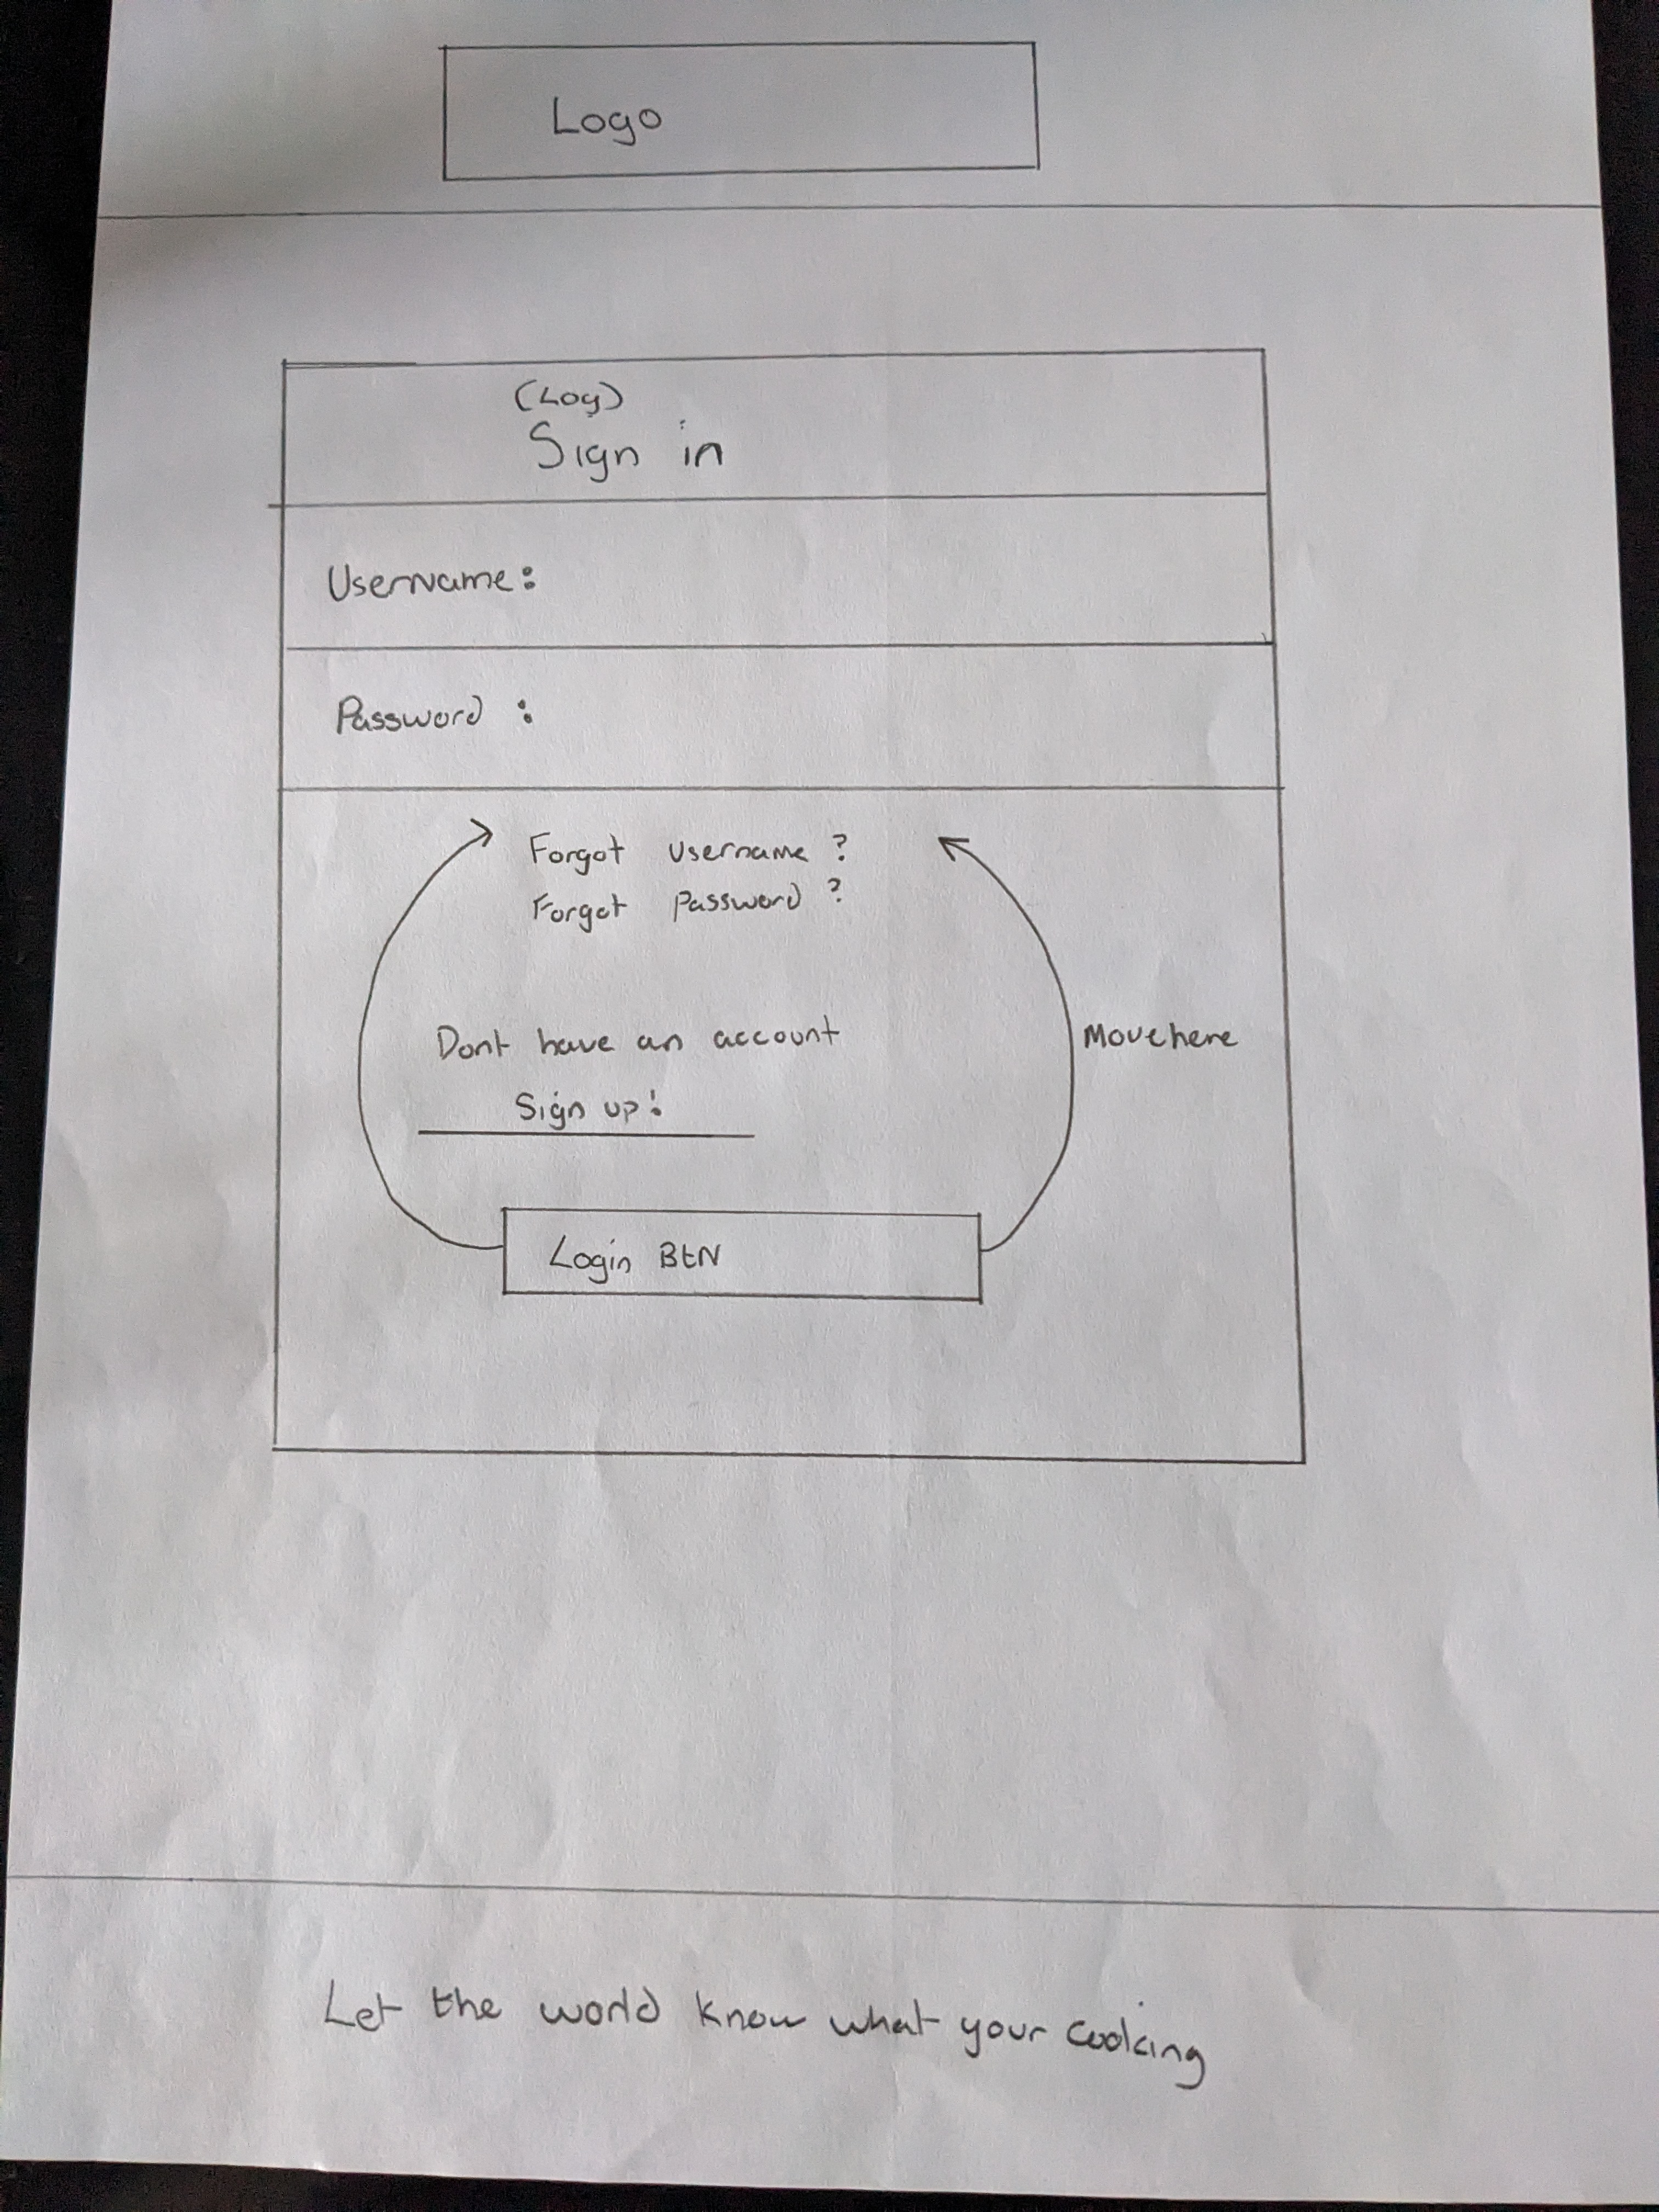 Logo
(Log)
Sign in
Username:
Password :
Forgot Username ?
Forgot Password ?
Dont have an account
Move here
Sign up!
Login BtN
Let the world know what your cooking